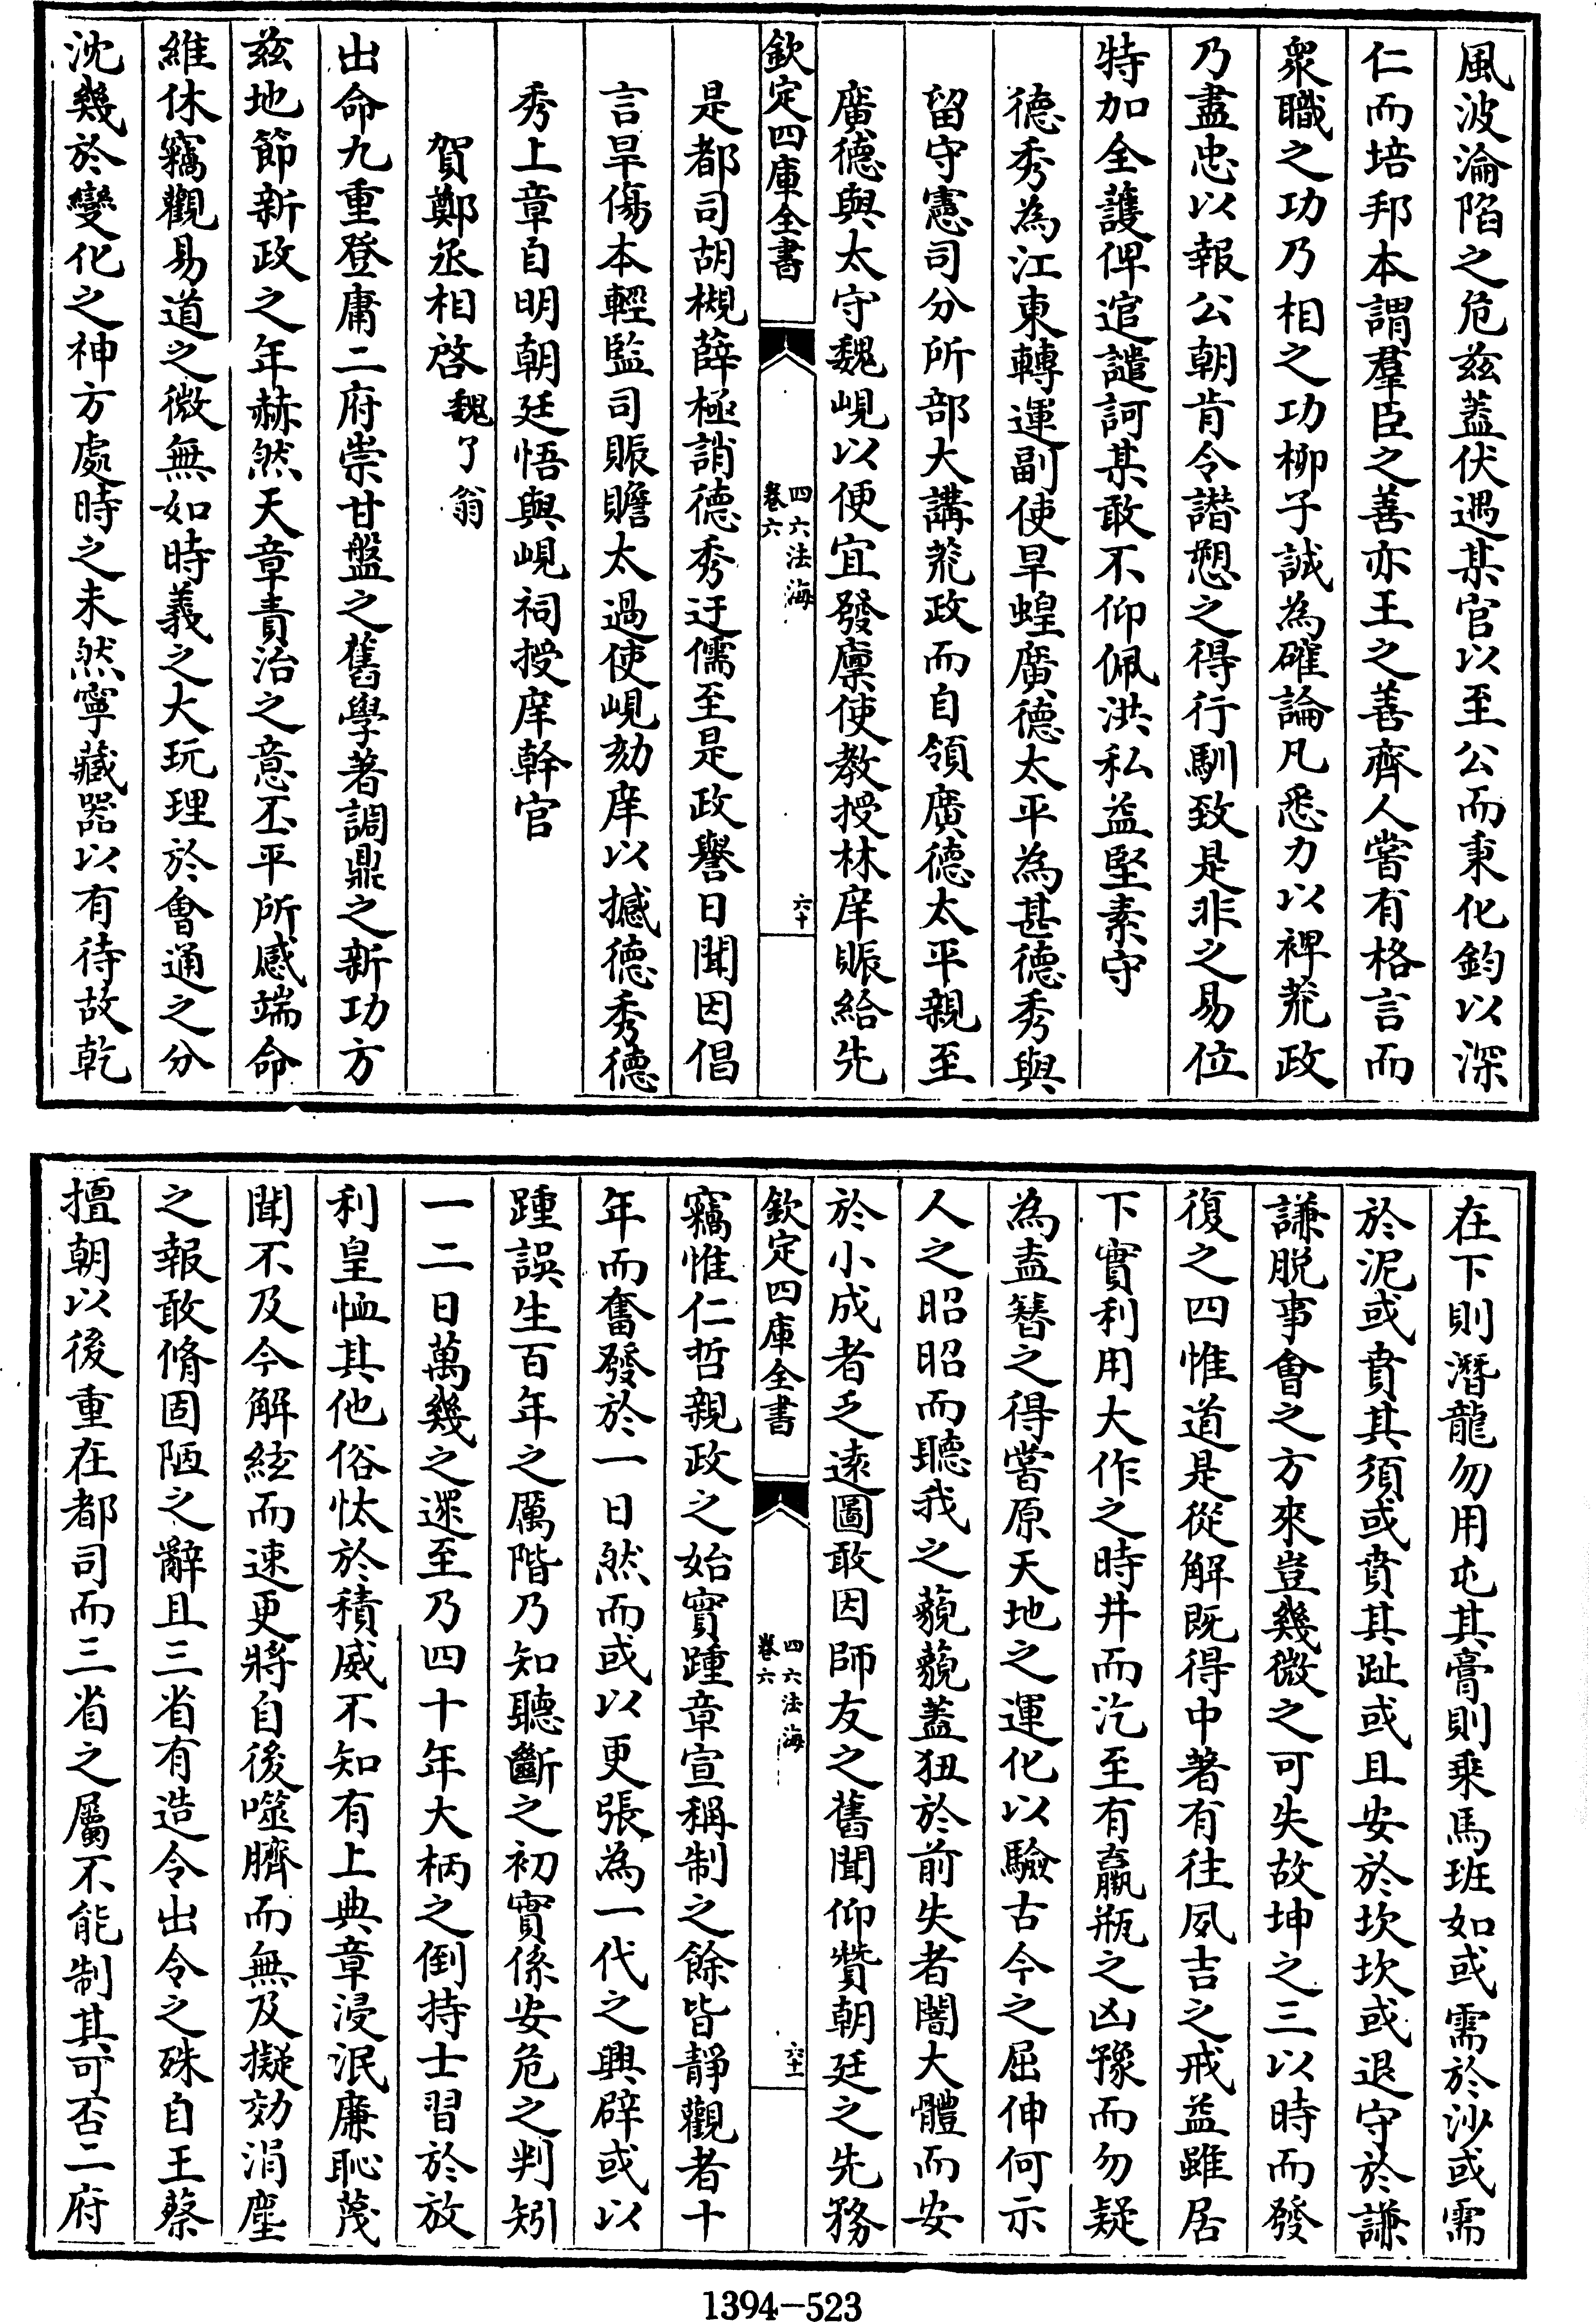 風波淪陷之危茲蓋伏遇某官以至公而秉化鈞以深
仁而培邦本謂羣臣之善亦王之善齊人嘗有格言而
衆職之功乃相之功柳子誠為確論凡悉力以裨荒政
乃盡忠以報公朝肯令譖愬之得行馴致是非之易位
特加全護俾逭譴訶某敢不仰佩洪私益堅素守
德秀為江東轉運副使旱蝗廣德太平為甚德秀與
留守憲司分所部大講荒政而自領廣德太平親至
廣德與太守魏峴以便宜發廪使教授林庠賑給先
欽定四庫全書
四六法海
卷六
六十
是都司胡槻薛極誚德秀迂儒至是政譽日聞因倡
言旱傷本輕監司賑贍太過使峴劾庠以撼德秀德
秀上章自明朝廷悟與峴祠授庠幹官
賀鄭丞相啓魏了翁
出命九重登庸二府崇甘盤之舊學著調鼎之新功方
茲地節新政之年赫然天章責治之意丕平所感端命
維休竊觀易道之微無如時義之大玩理於會通之分
沈幾於變化之神方處時之未然寧藏器以有待故乾
在下則潛龍勿用屯其膏則乗馬班如或需於沙或需
於泥或賁其須或賁其趾或且安於坎坎或退守於謙
謙脱事會之方來豈幾微之可失故坤之三以時而發
復之四惟道是從解既得中著有往夙吉之戒益雖居
下實利用大作之時井而汔至有羸瓶之凶豫而勿疑
為盍簪之得嘗原天地之運化以驗古今之屈伸何示
人之昭昭而聽我之藐藐蓋狃於前失者闇大體而安
於小成者乏遠圖敢因師友之舊聞仰贊朝廷之先務
欽定四庫全書
四六法海
卷六
六十一
竊惟仁哲親政之始實踵章宣稱制之餘皆靜觀者十
年而奮發於一日然而或以更張為一代之興辟或以
踵誤生百年之厲階乃知聽斷之初實係安危之判矧
一二日萬幾之遝至乃四十年大柄之倒持士習於放
利皇恤其他俗忲於積威不知有上典章浸泯廉恥蔑
聞不及今解絃而速更將自後噬臍而無及擬効涓塵
之報敢脩固陋之辭且三省有造令出令之殊自王蔡
擅朝以後重在都司而三省之屬不能制其可否二府
1394-523